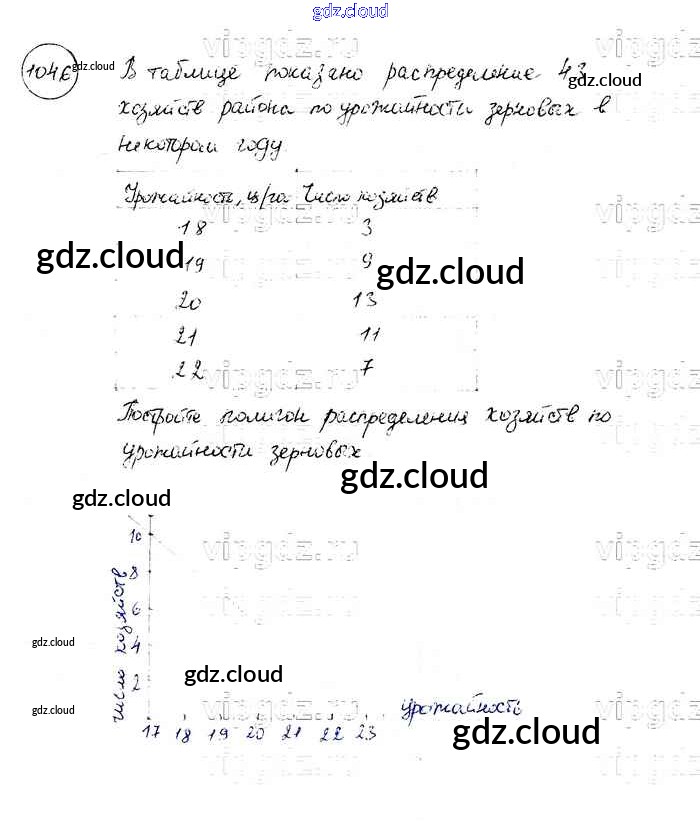 gdz.cloud
1046 gdz.cloud В таблице показано распределение 43
gdz.cloud
хозяйств района по урожайности зерновых в
некотором году
Урожайность, ц/га Число хозяйств
18 3
gdz.cloud
19 9
gdz.cloud
20 13
21 11
22 7
Постройте полигон распределения хозяйств по
урожайности зерновых
gdz.cloud
gdz.cloud
vipgdz.ru
число хозяйств
10
8
6
4
2
gdz.cloud
gdz.cloud
gdz.cloud
урожайность
17 18 19 20 21 22 23
gdz.cloud